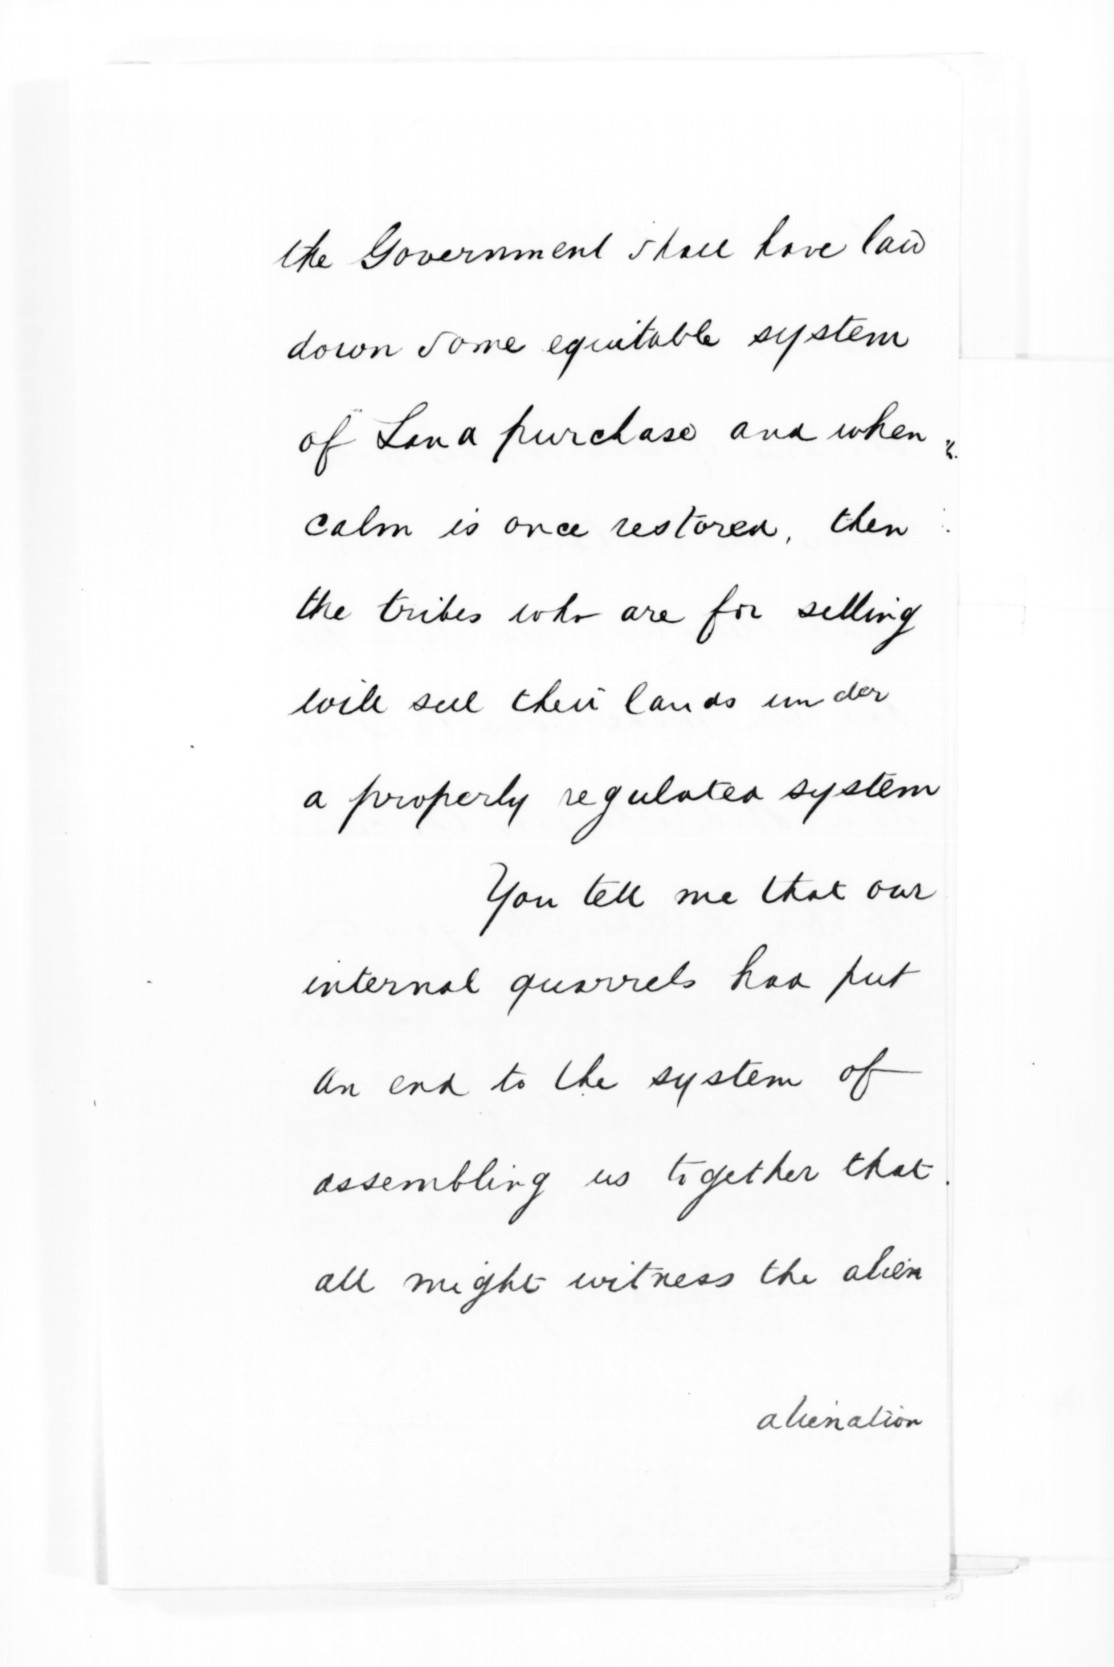 the Government shall have laid
down some equitable system
of Land purchase and when
calm is once restored, then
the tribes who are for selling
will sell their lands under
a properly regulated system
You tell me that our
internal quarrels had put
an end to the system of
assembling us together that
all might witness the alien
alienation